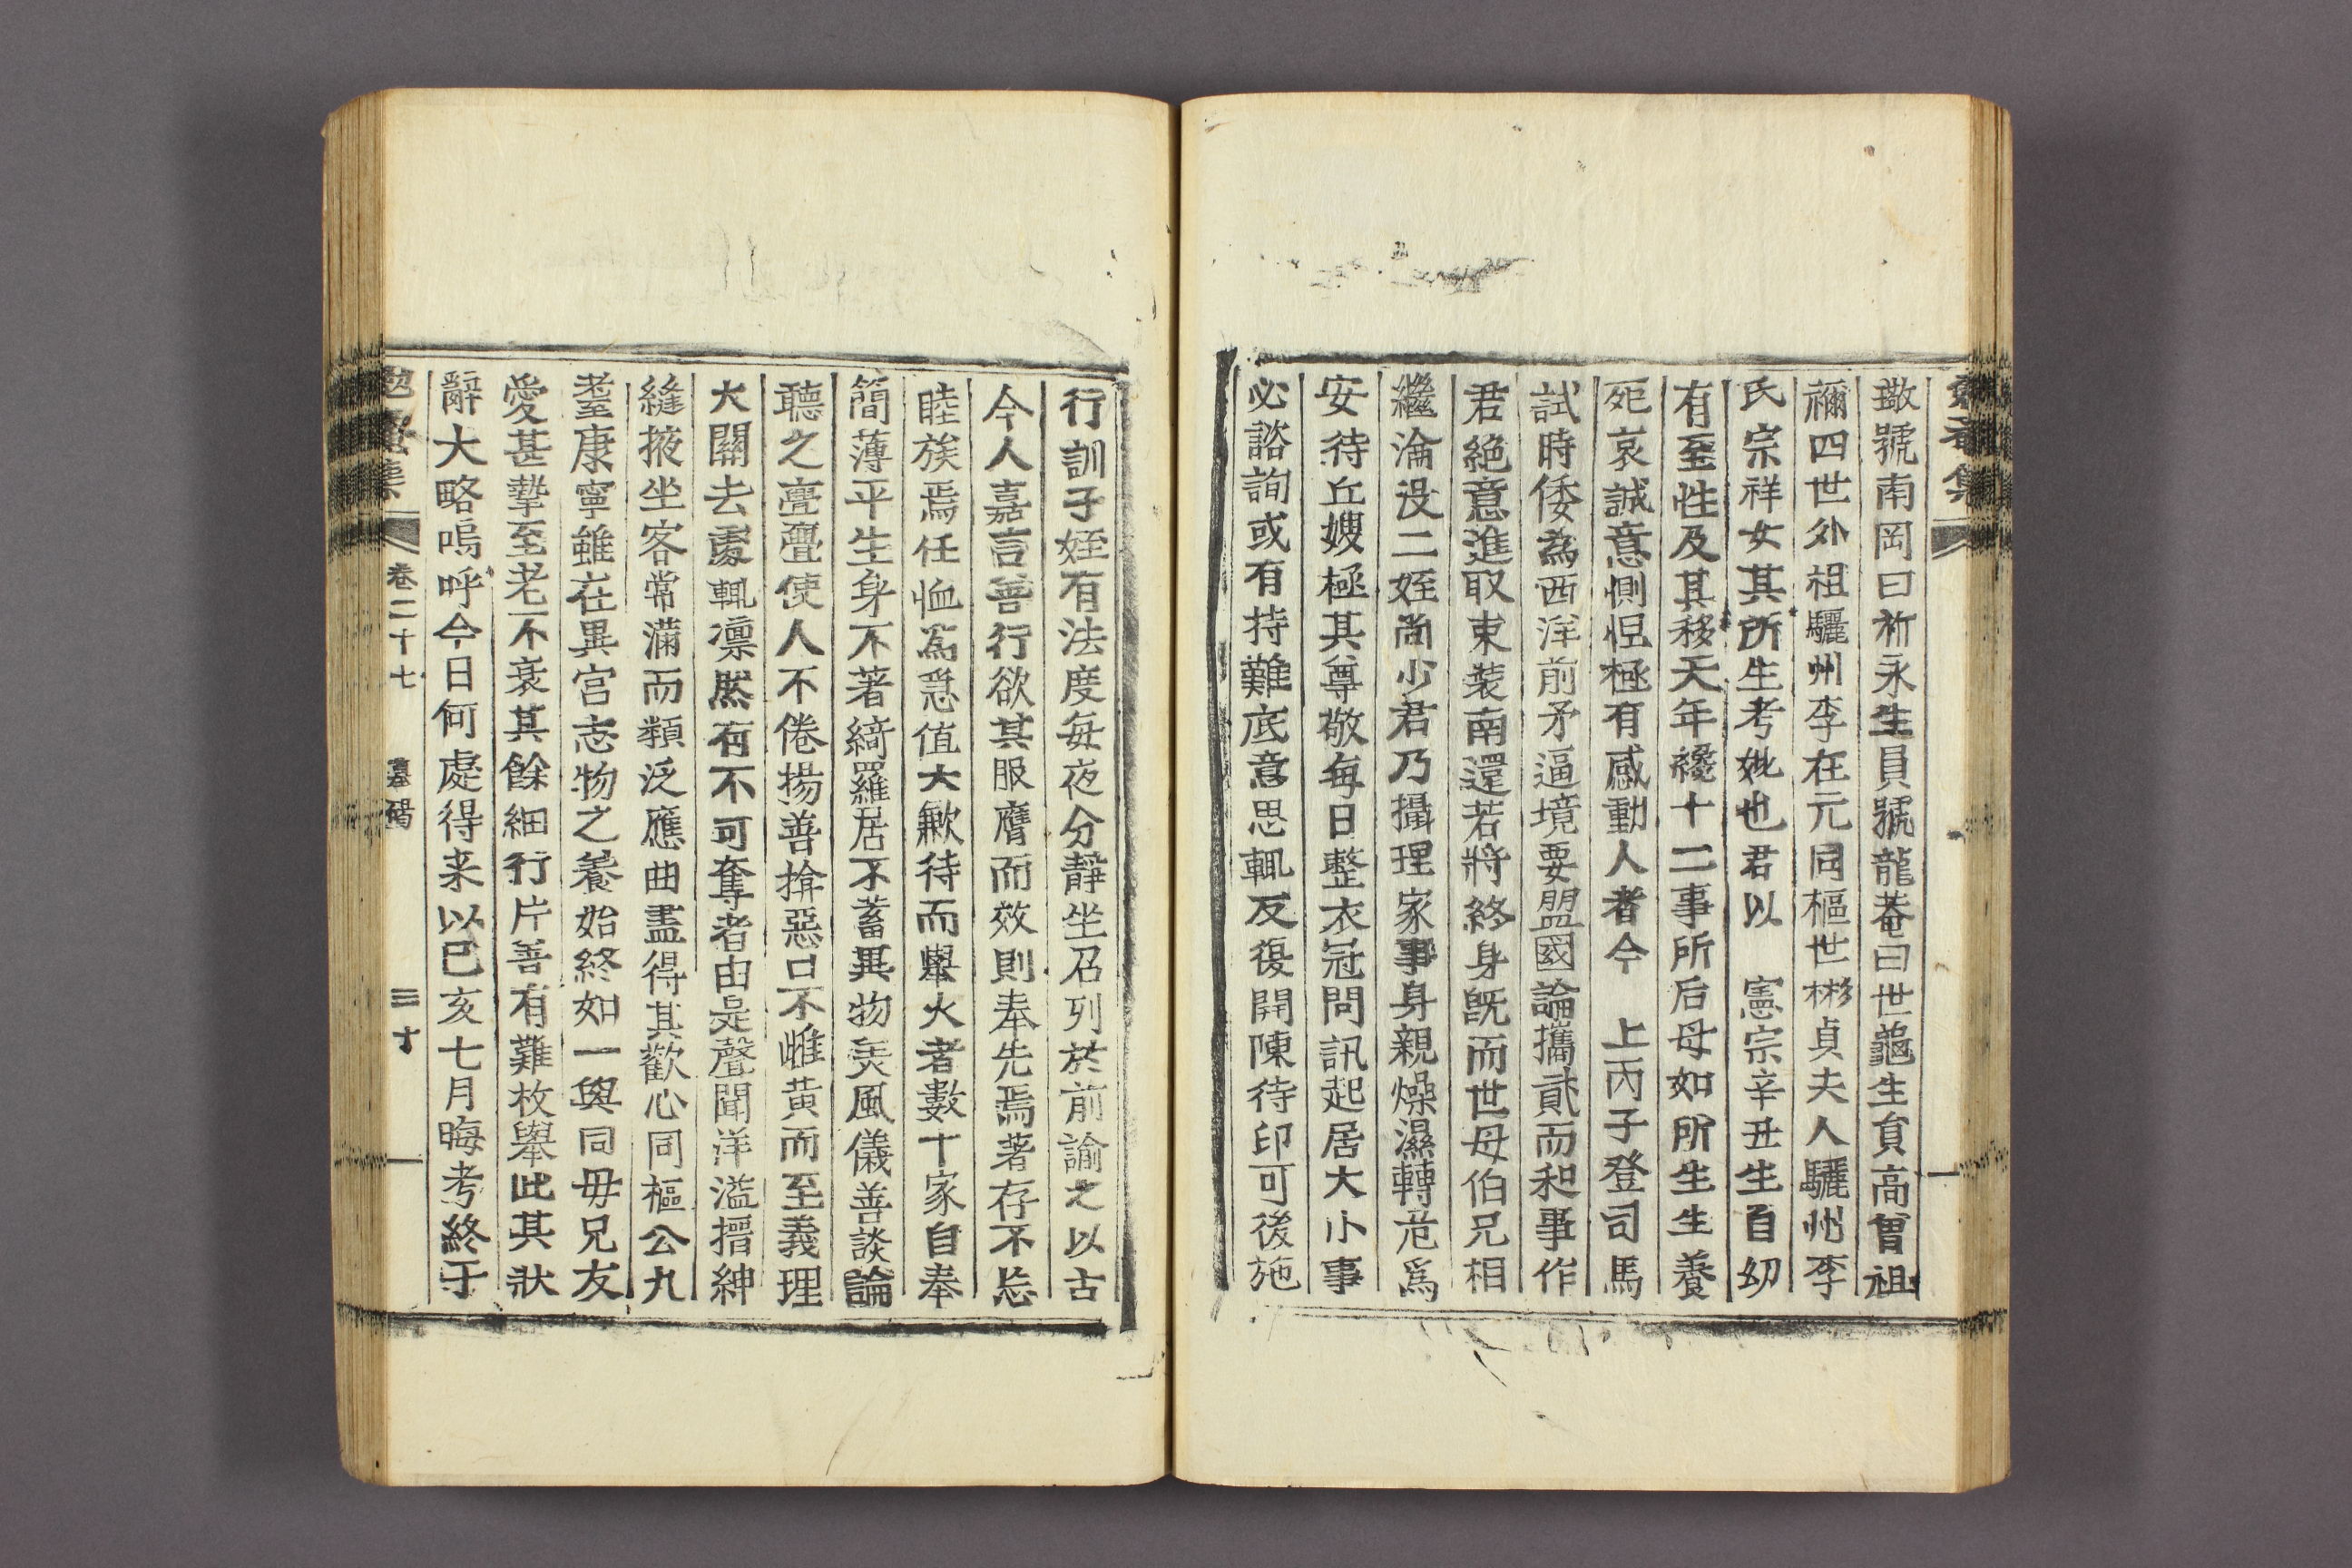 璥號南岡曰祈永生員號龍菴曰世龜生貟高曾祖
禰四世外祖驪州李在元同樞世彬貞夫人驪州李
氏宗祥女其所生考妣也君以 憲宗辛丑生自幼
有至性及其移天年纔十二事所后母如所生生養
死哀誠意惻怛極有感動人者今 上丙子登司馬
試時倭爲西洋前矛逼境要盟國論攜貳而和事作
君絶意進取束裝南還若將終身旣而世母伯兄相
繼淪沒二姪尚少君乃攝理家事身親燥濕轉危爲
安待丘嫂極其尊敬每日整衣冠問訊起居大小事
必諮詢或有持難底意思輒反復開陳待印可後施
行訓子姪有法度每夜分靜坐召列於前諭之以古
今人嘉言善行欲其服膺而效則奉先焉著存不忘
睦族焉任恤爲急値大歉待而擧火者數十家自奉
簡薄平生身不著綺羅居不蓄異物美風儀善談論
聽之亹亹使人不倦揚善揜惡口不雌黃而至義理
大關去處輒凜然有不可奪者由是聲聞洋溢搢紳
縫掖坐客常滿而類泛應曲盡得其歡心同樞公九
耋康寧雖在異宮志物之養始終如一與同母兄友
愛甚摯至老不衰其餘細行片善有難枚擧此其狀
辭大略嗚呼今日何處得来以己亥七月晦考終于
勉菴集 卷二十七 墓碣 三十